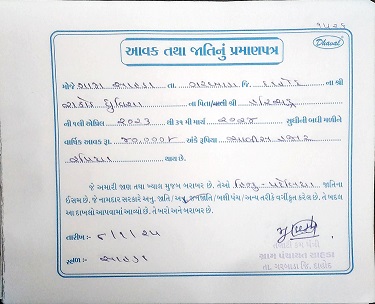 ૧૫૨૬
આવક તથા જાતિનું પ્રમાણપત્ર
Dhaval
મોજે ગામ સાહડા તા. ગરબાડા જિ. દાહોદ ના શ્રી
રાઠોડ ના પિતા/વાલી શ્રી
ની ૧લી એપ્રિલ ૨૦૨૩ થી ૩૧ મી માર્ચ ૨૦૨૪ સુધીની બધી મળીને
વાર્ષિક આવક રૂા. ૪૦,૦૦૦/ અંકે રૂપિયા ચાલીસ હજાર
રૂપિયા થાય છે.
જે અમારી જાણ તથા ખ્યાલ મુજબ બરાબર છે. તેઓ હિન્દુ - જાતિના
ઈસમ છે. જે નામદાર સરકારે અનુ. જાતિ / અનુ. જનજાતિ / બક્ષી પંચ / અન્ય તરીકે વર્ગીકૃત કરેલ છે. તે બદલ
આ દાખલો આપવામાં આવ્યો છે. તે ખરો અને બરાબર છે.
તારીખ :- ૮/૧/૨૫
સ્થળ :- સાહડા
તલાટી કમ મંત્રી
ગ્રામ પંચાયત સાહડા
તા. ગરબાડા જી. દાહોદ